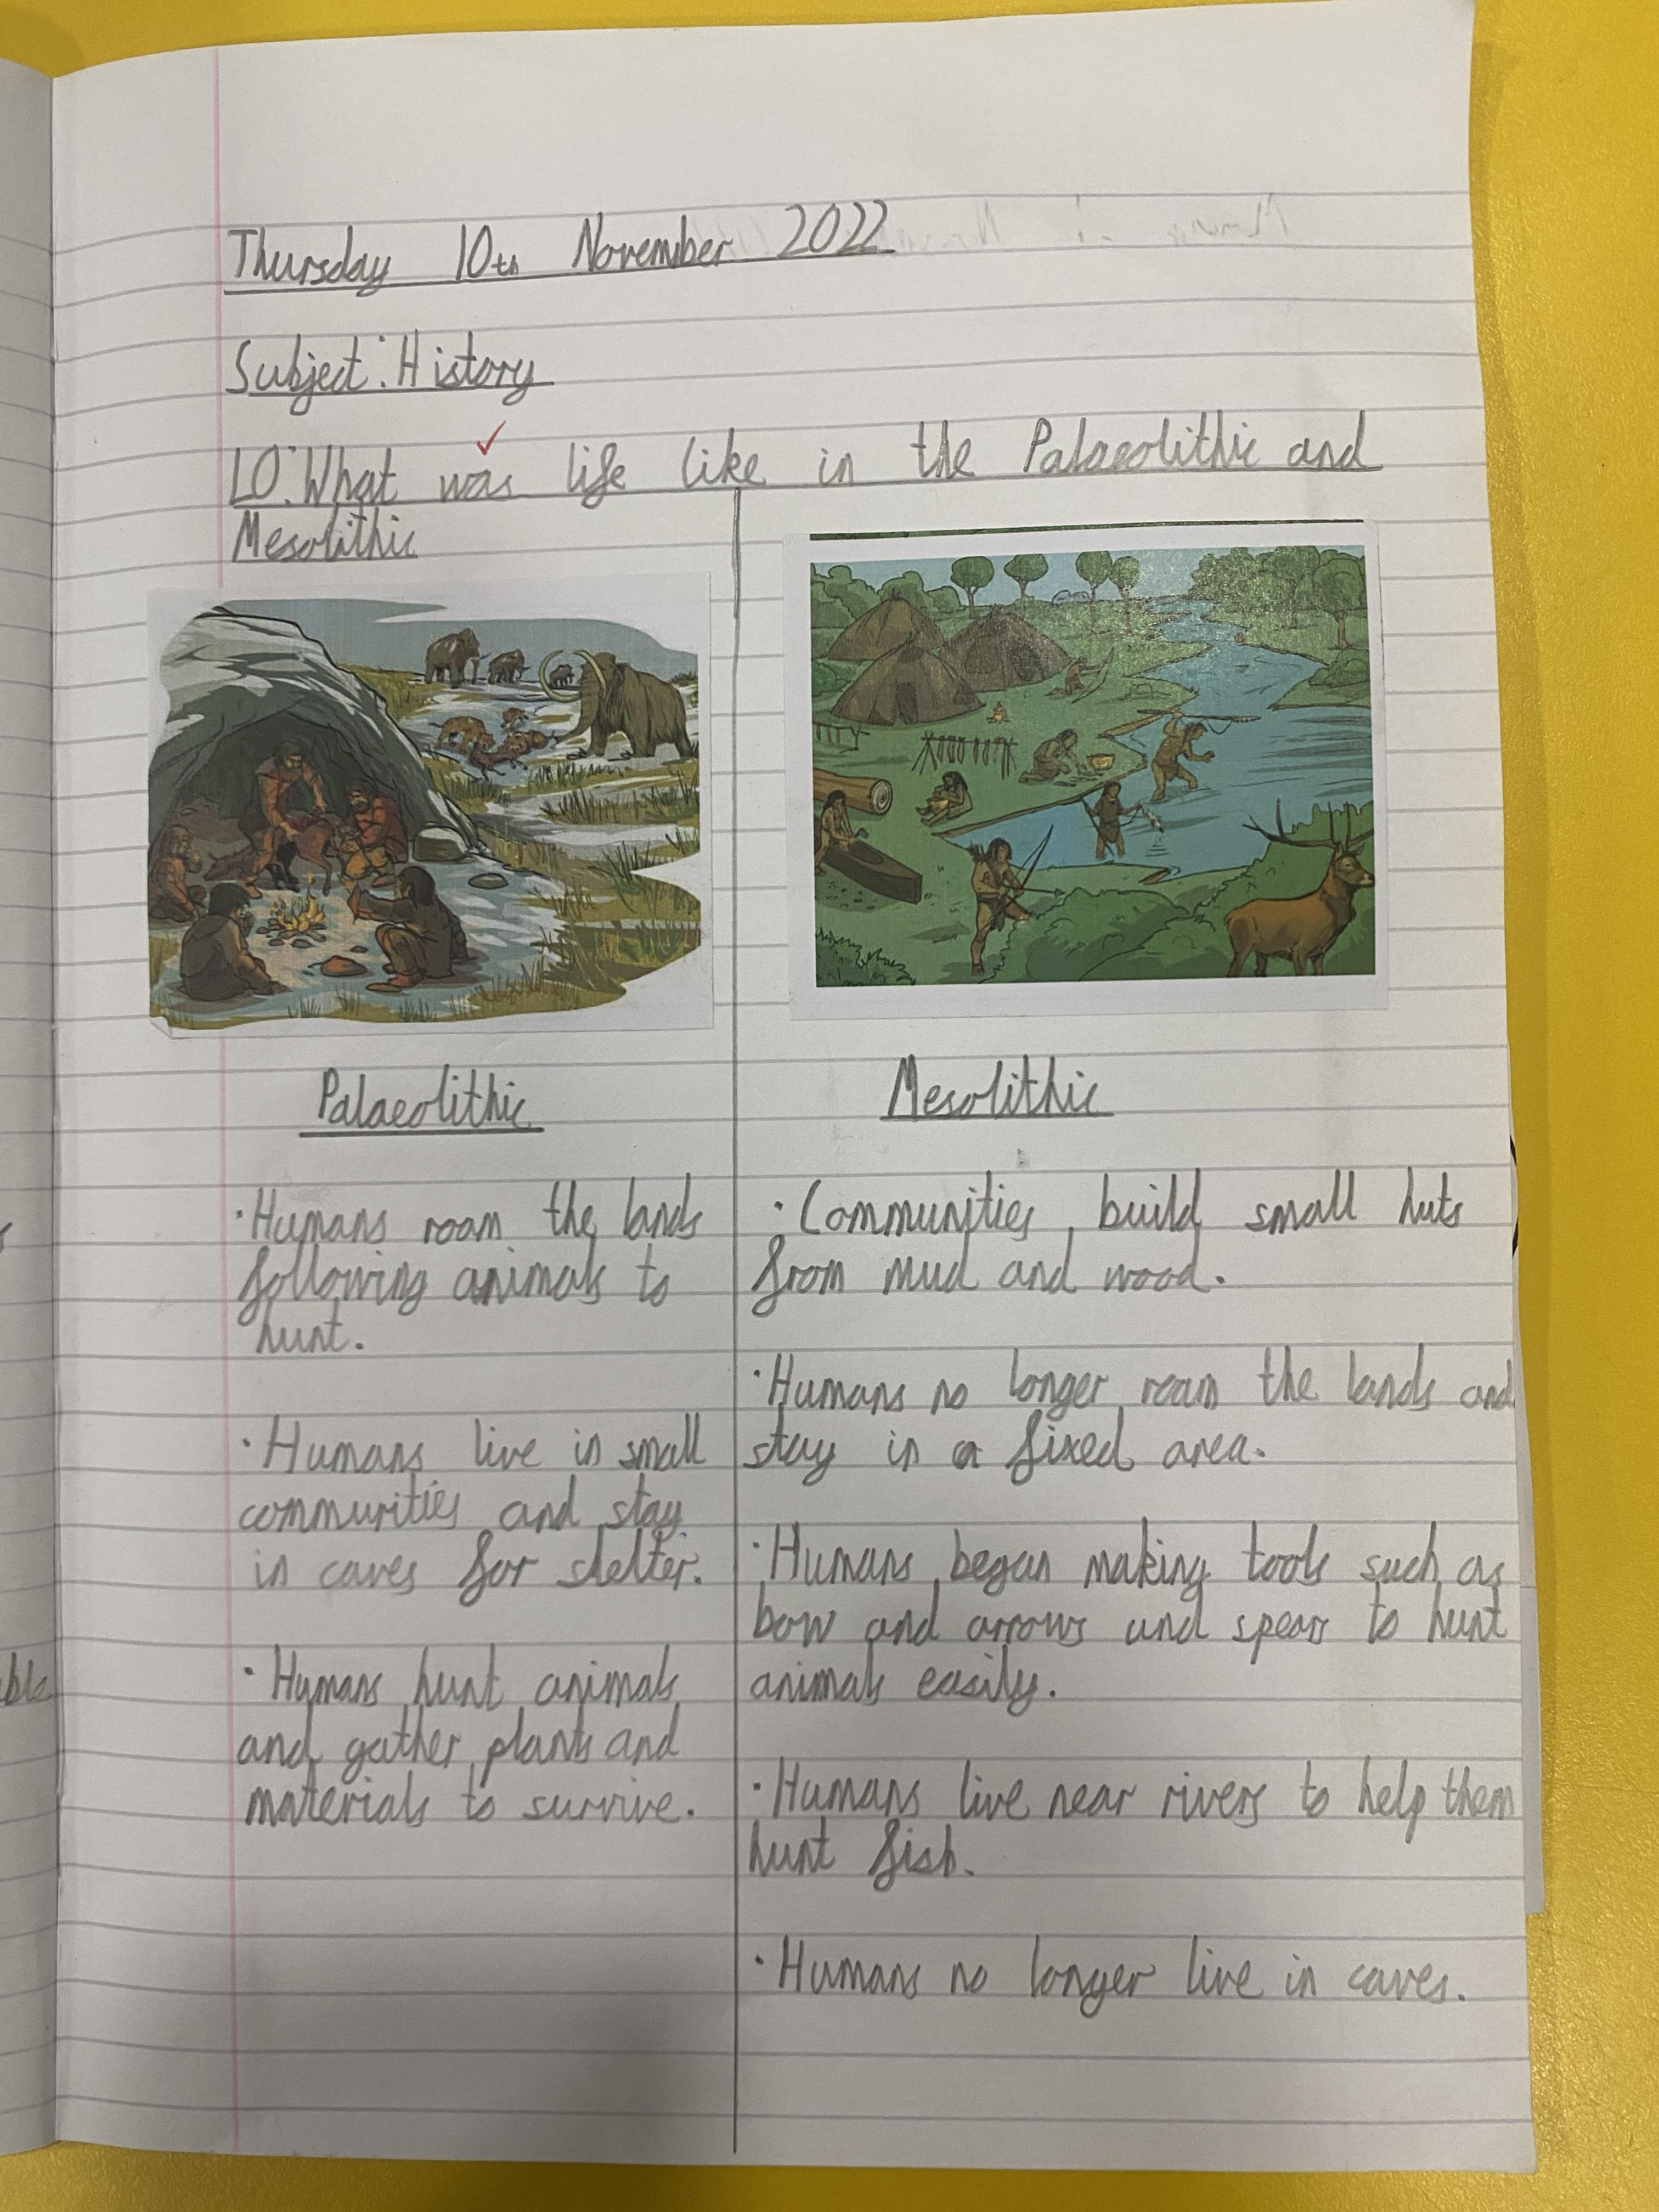 Thursday 10th November 2022
Subject: History
LO: What was life like in the Palaeolithic and
Mesolithic
Palaeolithic
·Humans roam the lands
following animals to
hunt.
·Humans live in small
communities and stay
in caves for shelter.
·Humans hunt animals
and gather plants and
materials to survive.
Mesolithic
·Communities build small huts
from mud and wood.
·Humans no longer roam the lands and
stay in a fixed area.
·Humans began making tools such as
bow and arrows and spears to hunt
animals easily.
·Humans live near rivers to help them
hunt fish.
·Humans no longer live in caves.